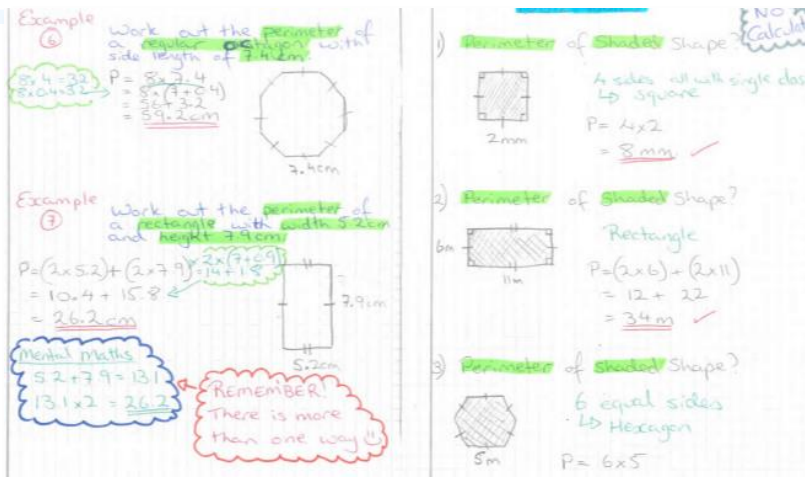 Example
6
Work out the perimeter of
a regular octagon with
side length of 7.4cm.
8×4=32
8×0.4=3.2
P = 8×7.4
= 8×(7+0.4)
= 56+3.2
= 59.2cm
7.4cm
Example
7
Work out the perimeter of
a rectangle with width 5.2cm
and height 7.9cm
P=(2×5.2)+(2×7.9)
2×(7+0.9)
=14+1.8
= 10.4 + 15.8
= 26.2cm
7.9cm
5.2cm
Mental Maths
5.2+7.9=13.1
13.1×2=26.2
REMEMBER!
There is more
than one way
NO
Calculat
1) Perimeter of Shaded Shape?
2mm
4 sides all with single das
↳ Square
P= 4×2
= 8mm ✓
2) Perimeter of Shaded Shape?
6m
11m
Rectangle
P=(2×6)+(2×11)
= 12 + 22
= 34m ✓
3) Perimeter of Shaded Shape?
5m
6 equal sides
↳ Hexagon
P= 6×5